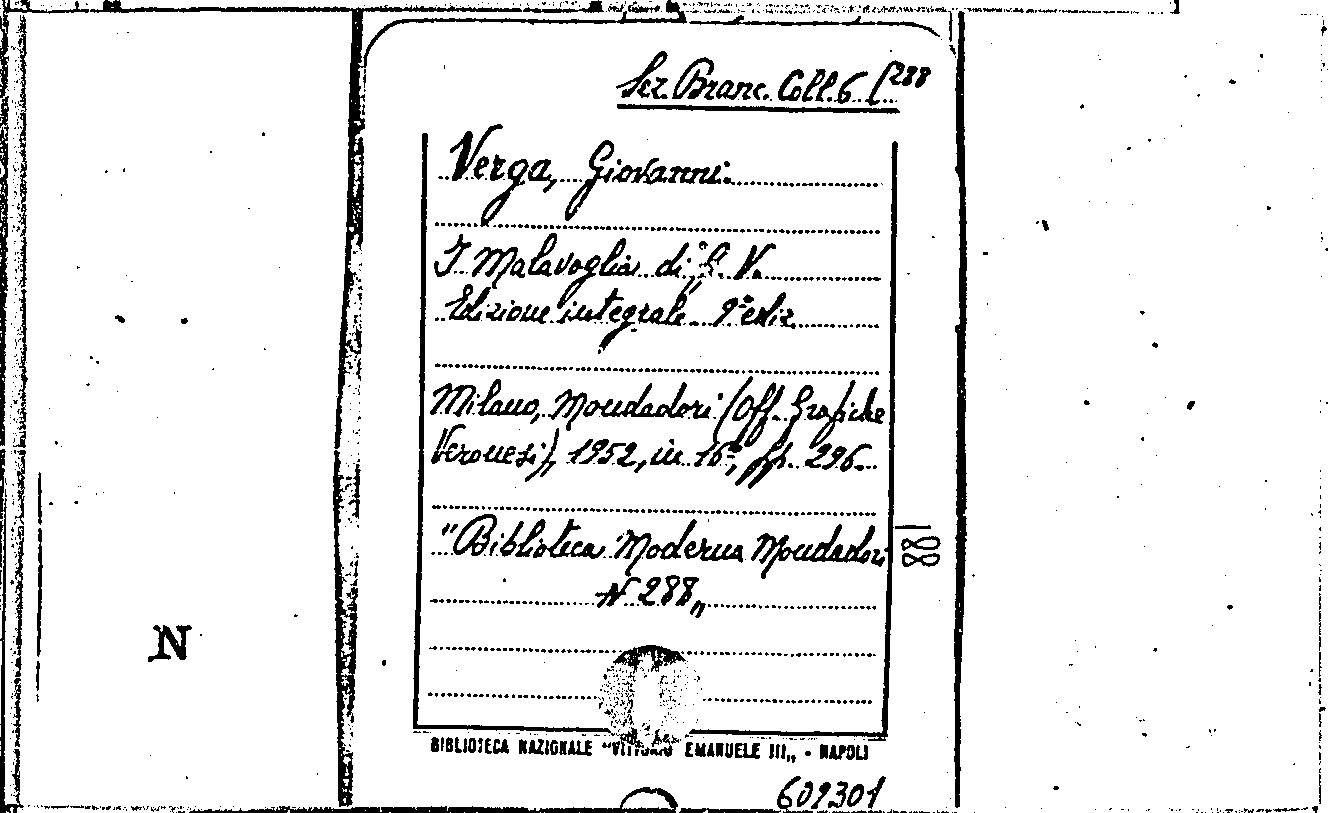 Sez. Branc. Coll. 6 [288
Verga, Giovanni.
I Malavoglia di G. V.
Edizione integrale. 9ª ediz.
Milano, Mondadori (Off. Grafiche
Veronesi), 1952, in 16º, pp. 296.
"Biblioteca Moderna Mondadori
N 288„
188
N
BIBLIOTECA NAZIONALE "VITTORIO EMANUELE III„ - NAPOLI
609301